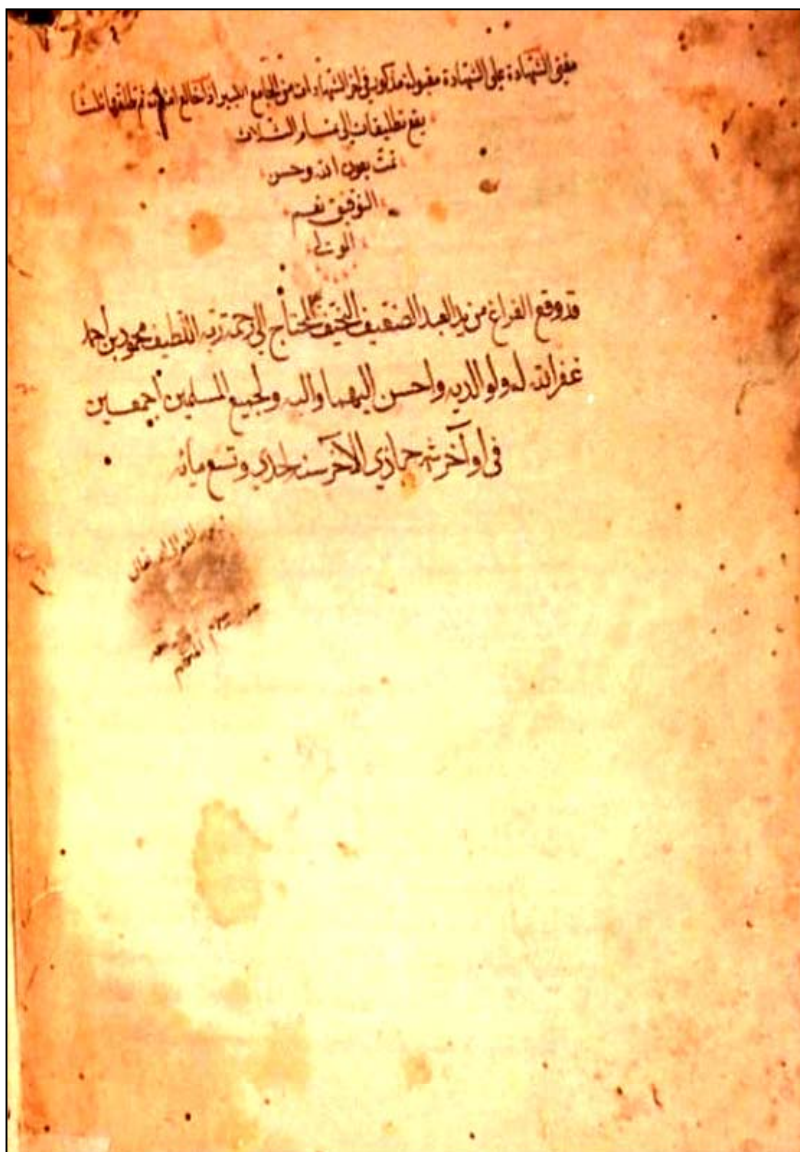 معنى الشهادة على الشهادة مقبولة مذكور في آخر الشهادات من الجامع الكبير اذا خالع امرأته ثم طلقها ثلثا
يقع تطليقات الى تمام الثلاث
تمت بعون الله وحسن
التوفيق نعم
قد وقع الفراغ من يد العبد الضعيف النحيف المحتاج الى رحمة ربه اللطيف محمود بن احمد
غفر الله له ولوالديه واحسن اليهما واليه ولجميع المسلمين اجمعين
في اواخر شهر جمادي الآخر سنه احدي وتسع مائه